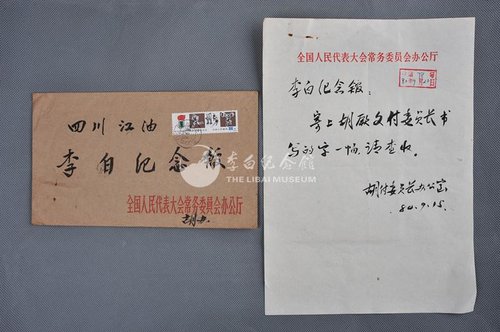 四川 江油
李白纪念馆
全国人民代表大会常务委员会办公厅
李白纪念馆
THE LIBAI MUSEUM
全国人民代表大会常务委员会办公厅
李白纪念馆：
寄上胡厥文付委员长书
写的字一幅，请查收。
胡付委员长办公室
84.9.15.